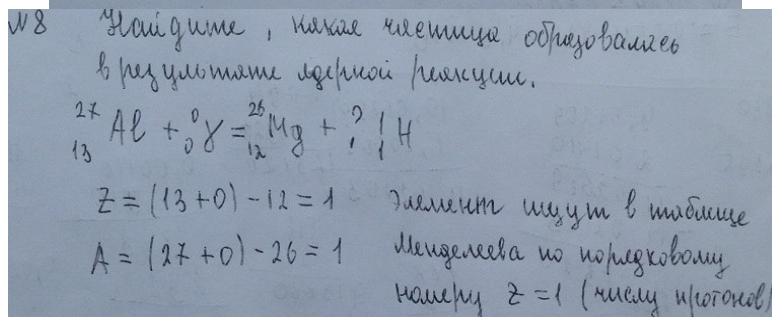 N8 Найдите, какая частица образовалась
в результате ядерной реакции.
²⁷₁₃Al + ⁰₀γ = ²⁶₁₂Mg + ? ¹₁H
Z = (13+0) - 12 = 1 Элемент ищут в таблице
A = (27+0) - 26 = 1 Менделеева по порядковому
номеру Z = 1 (числу протонов)